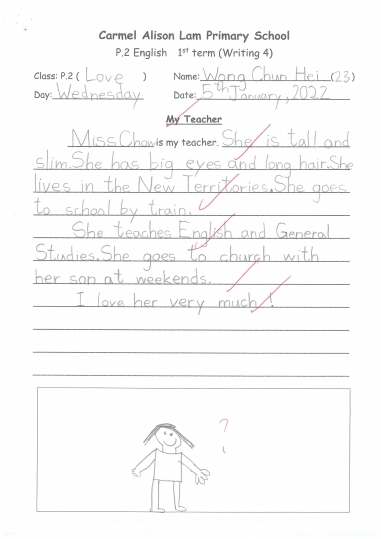 Carmel Alison Lam Primary School
P.2 English 1st term (Writing 4)
Class: P.2 ( Love ) Name: Wong Chun Hei (23)
Day: Wednesday Date: 5th January, 2022
My Teacher
Miss Chow is my teacher. She is tall and
slim. She has big eyes and long hair. She
lives in the New Territories. She goes
to school by train.
She teaches English and General
Studies. She goes to church with
her son at weekends.
I love her very much!
?